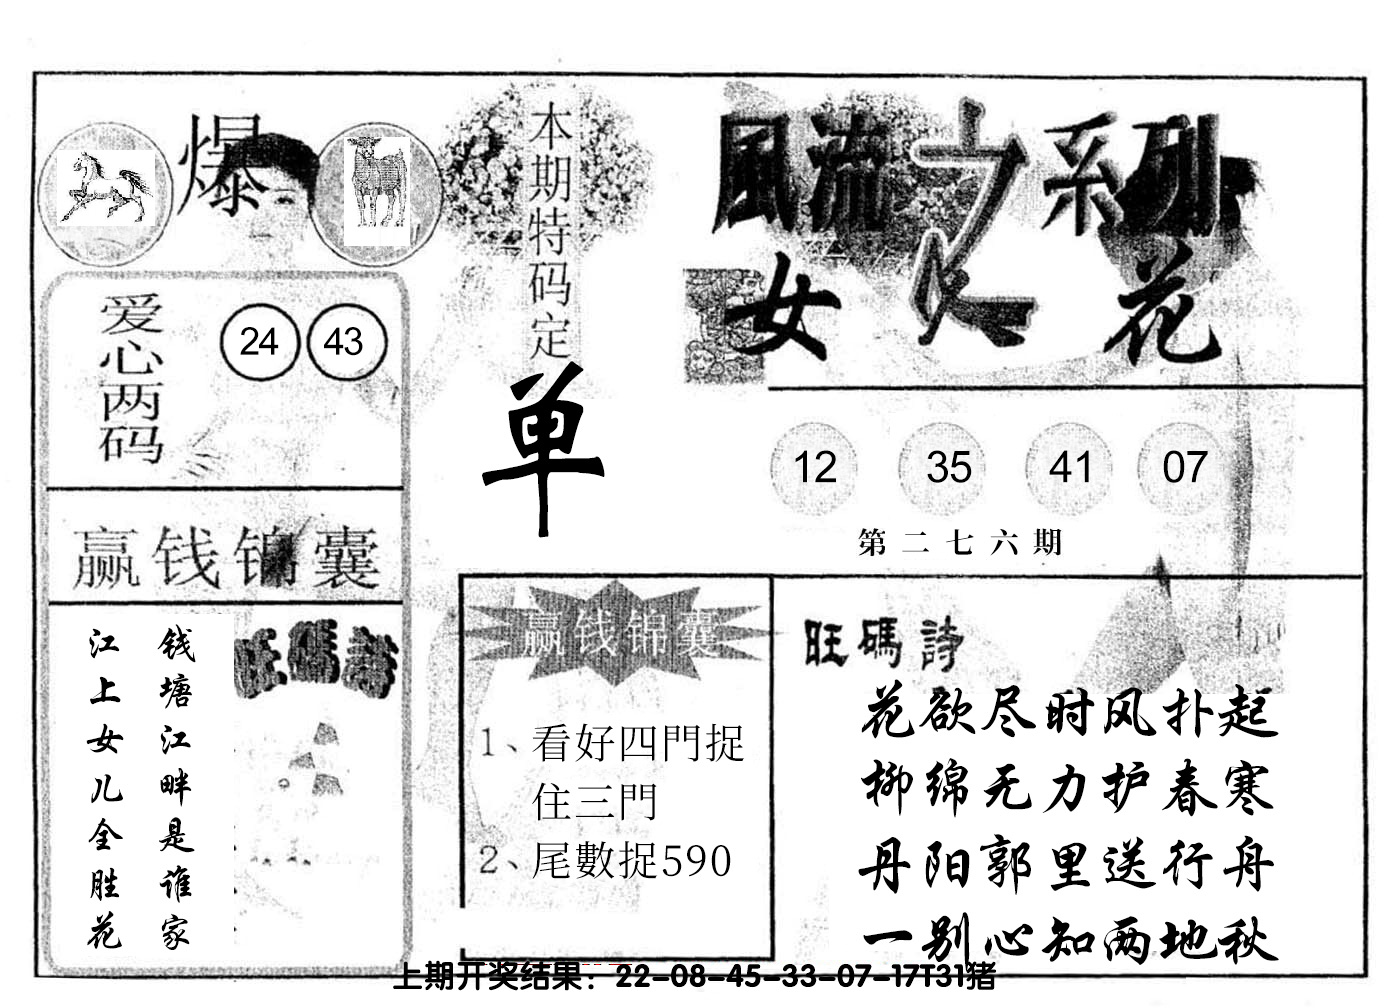 爆
爱心两码
24 43
赢钱锦囊
钱塘江畔是谁家
江上女儿全胜花
旺碼詩
本期特码定
单
風流之系列
女人花
12 35 41 07
第二七六期
赢钱锦囊
1、看好四門捉
住三門
2、尾數捉590
旺碼詩
花欲尽时风扑起
柳绵无力护春寒
丹阳郭里送行舟
一别心知两地秋
上期开奖结果：22-08-45-33-07-17T31猪